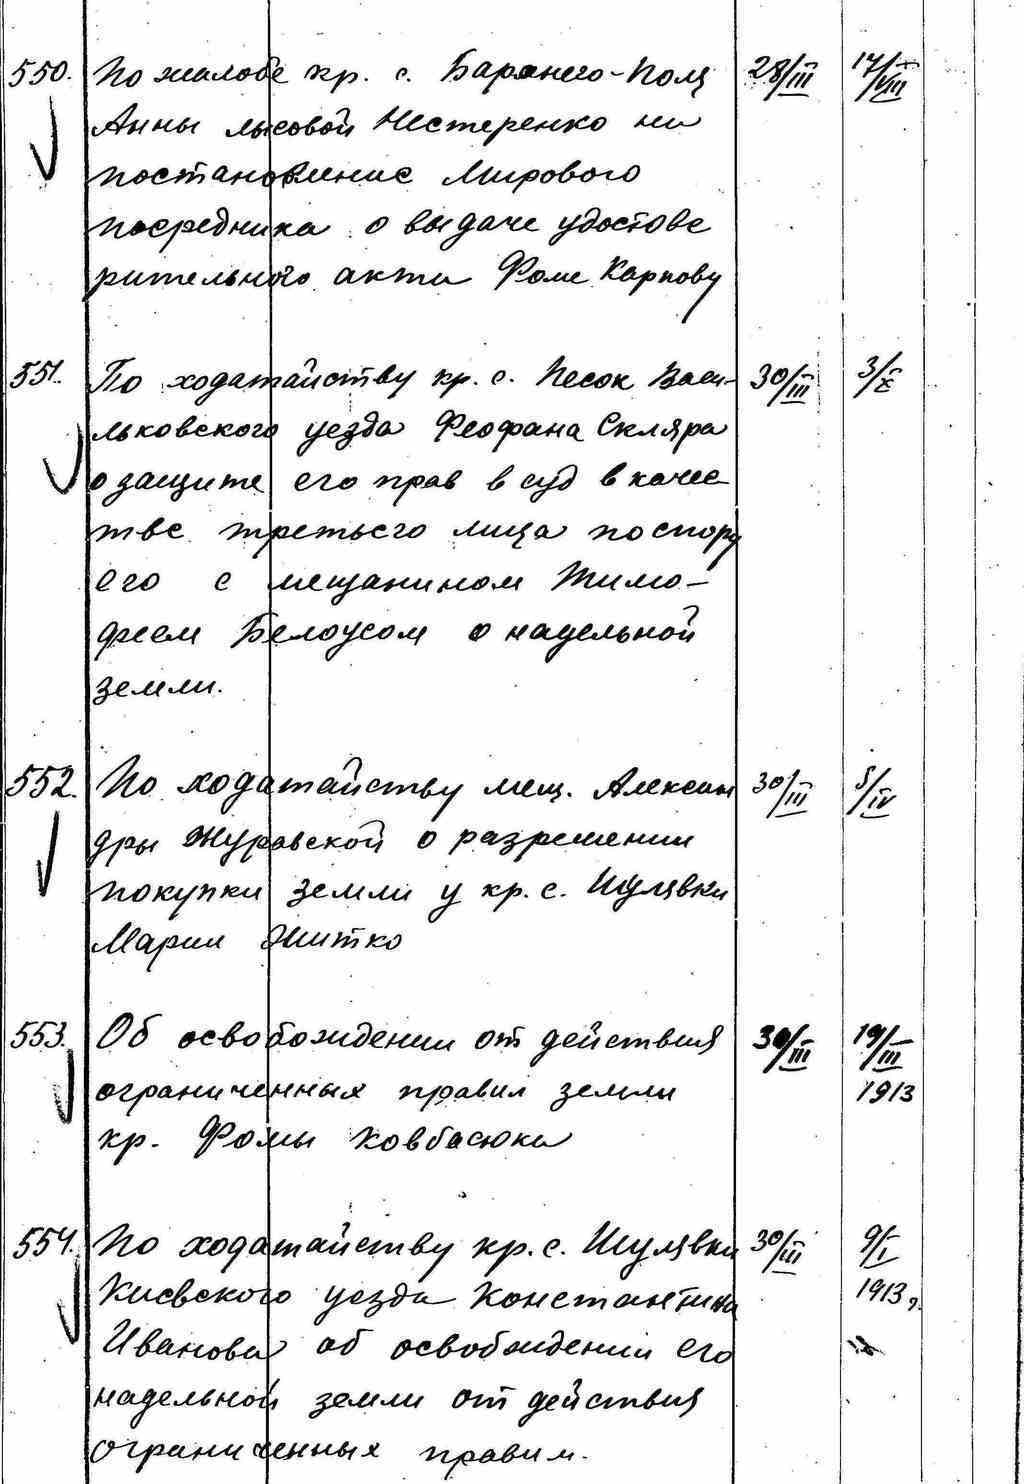 550. По жалобе кр. с. Бараньего-Поля 28/III 17/VIII
Анны Лысовой Нестеренко на
постановление Мирового
посредника о выдаче удостове
рительного акта Фоме Карпову
551. По ходатайству кр. с. Песок Васи- 30/III 3/X
льковского уезда Феофана Скляра
о защите его прав в суд в качес
тве третьего лица по спору
его с мещанином Тимо-
феем Белоусом о надельной
земли.
552. По ходатайству мещ. Алексан 30/III 5/IV
дры Журавской о разрешении
покупки земли у кр. с. Шулявки
Марии Житко
553. Об освобождении от действия 30/III 19/III
ограниченных правил земли 1913
кр. Фомы Ковбасюка
554. По ходатайству кр. с. Шулявки 30/III 9/I
Киевского уезда Константина 1913 г.
Иванова об освобждении его
надельной земли от действия
ограниченных правил.